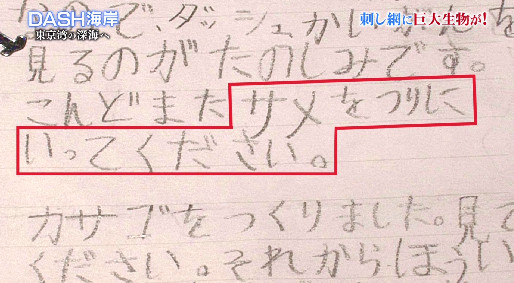 DASH海岸
東京湾の深海へ
刺し網に巨大生物が!
ので、ダッシュかいがんを
見るのがたのしみです。
こんどまたサメをつりに
いってください。
カサゴをつくりました。見て
ください。それからほうい